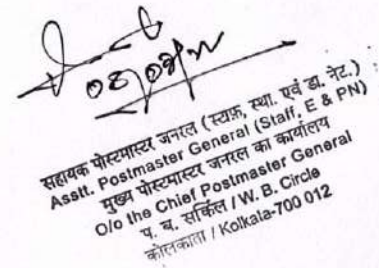 सहायक पोस्टमास्टर जनरल (स्टाफ़, स्था. एवं डा. नेट.)
Asstt. Postmaster General (Staff, E & PN)
मुख्य पोस्टमास्टर जनरल का कार्यालय
O/o the Chief Postmaster General
प. बं. सर्किल / W. B. Circle
कोलकाता / Kolkata-700 012